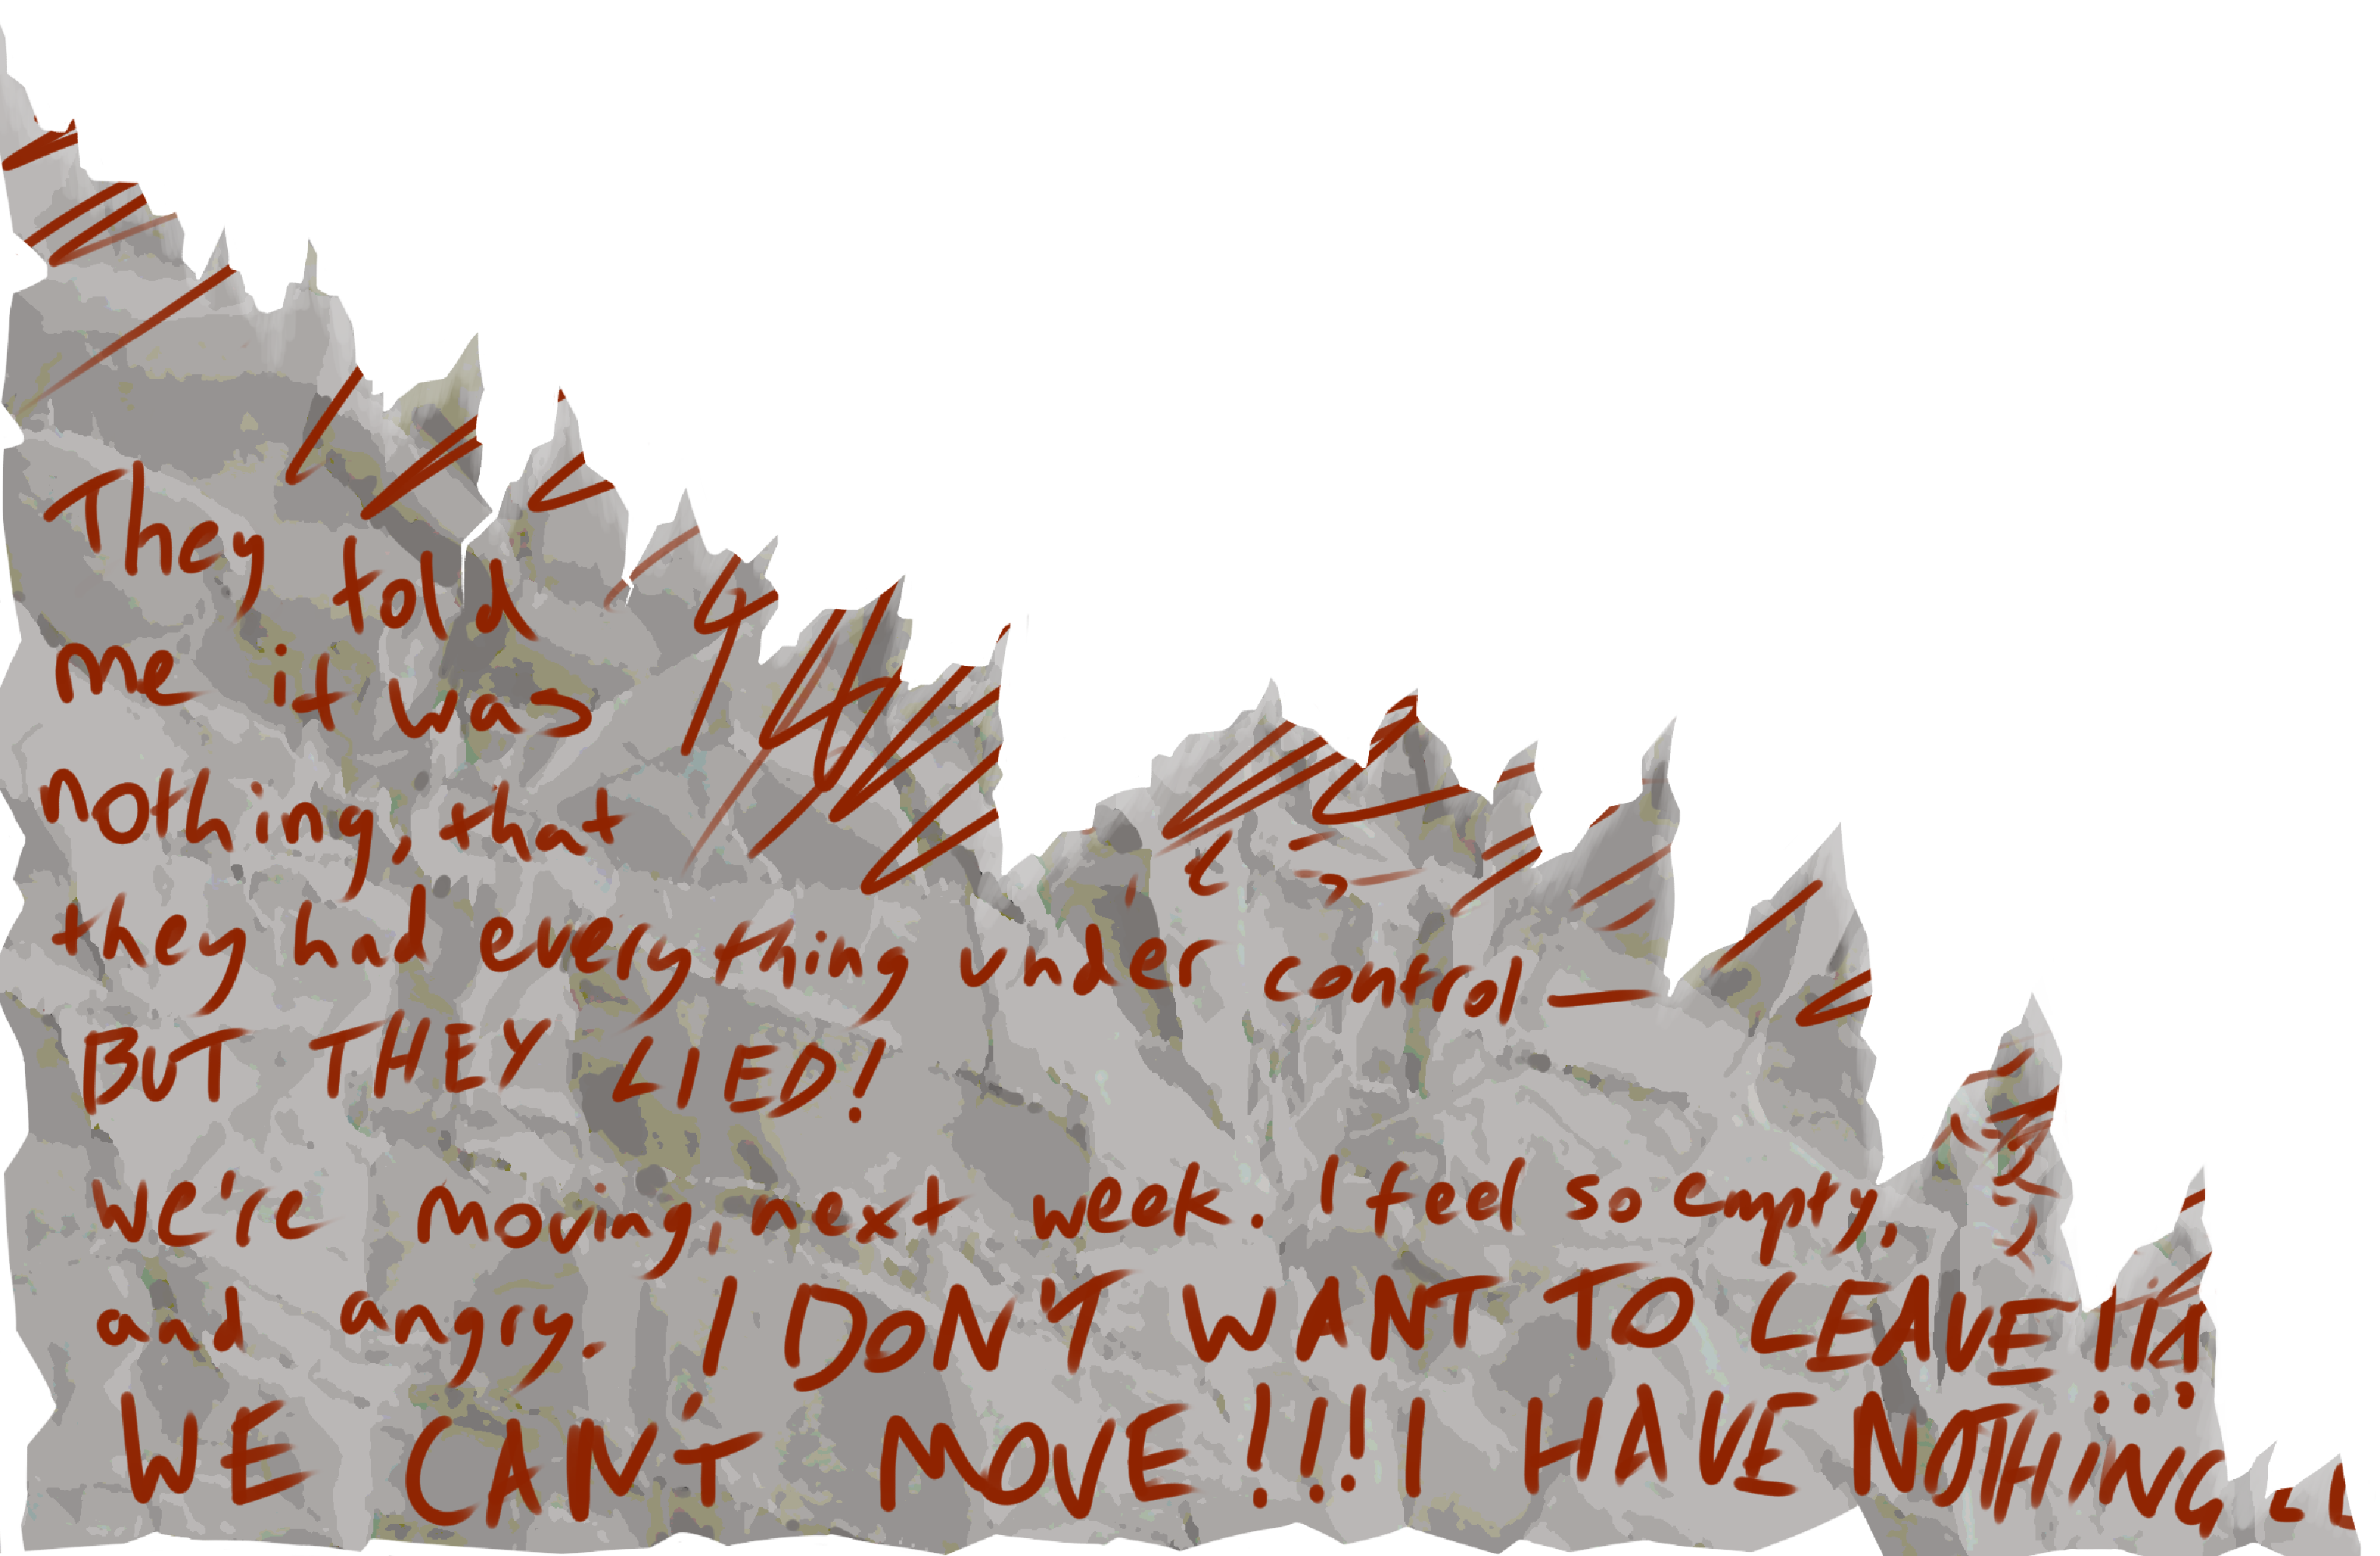 They told
me it was
nothing, that
they had everything under control —
BUT THEY LIED!
We're moving, next week. I feel so empty,
and angry. I DON'T WANT TO LEAVE!!!
WE CAN'T MOVE!!! I HAVE NOTHING